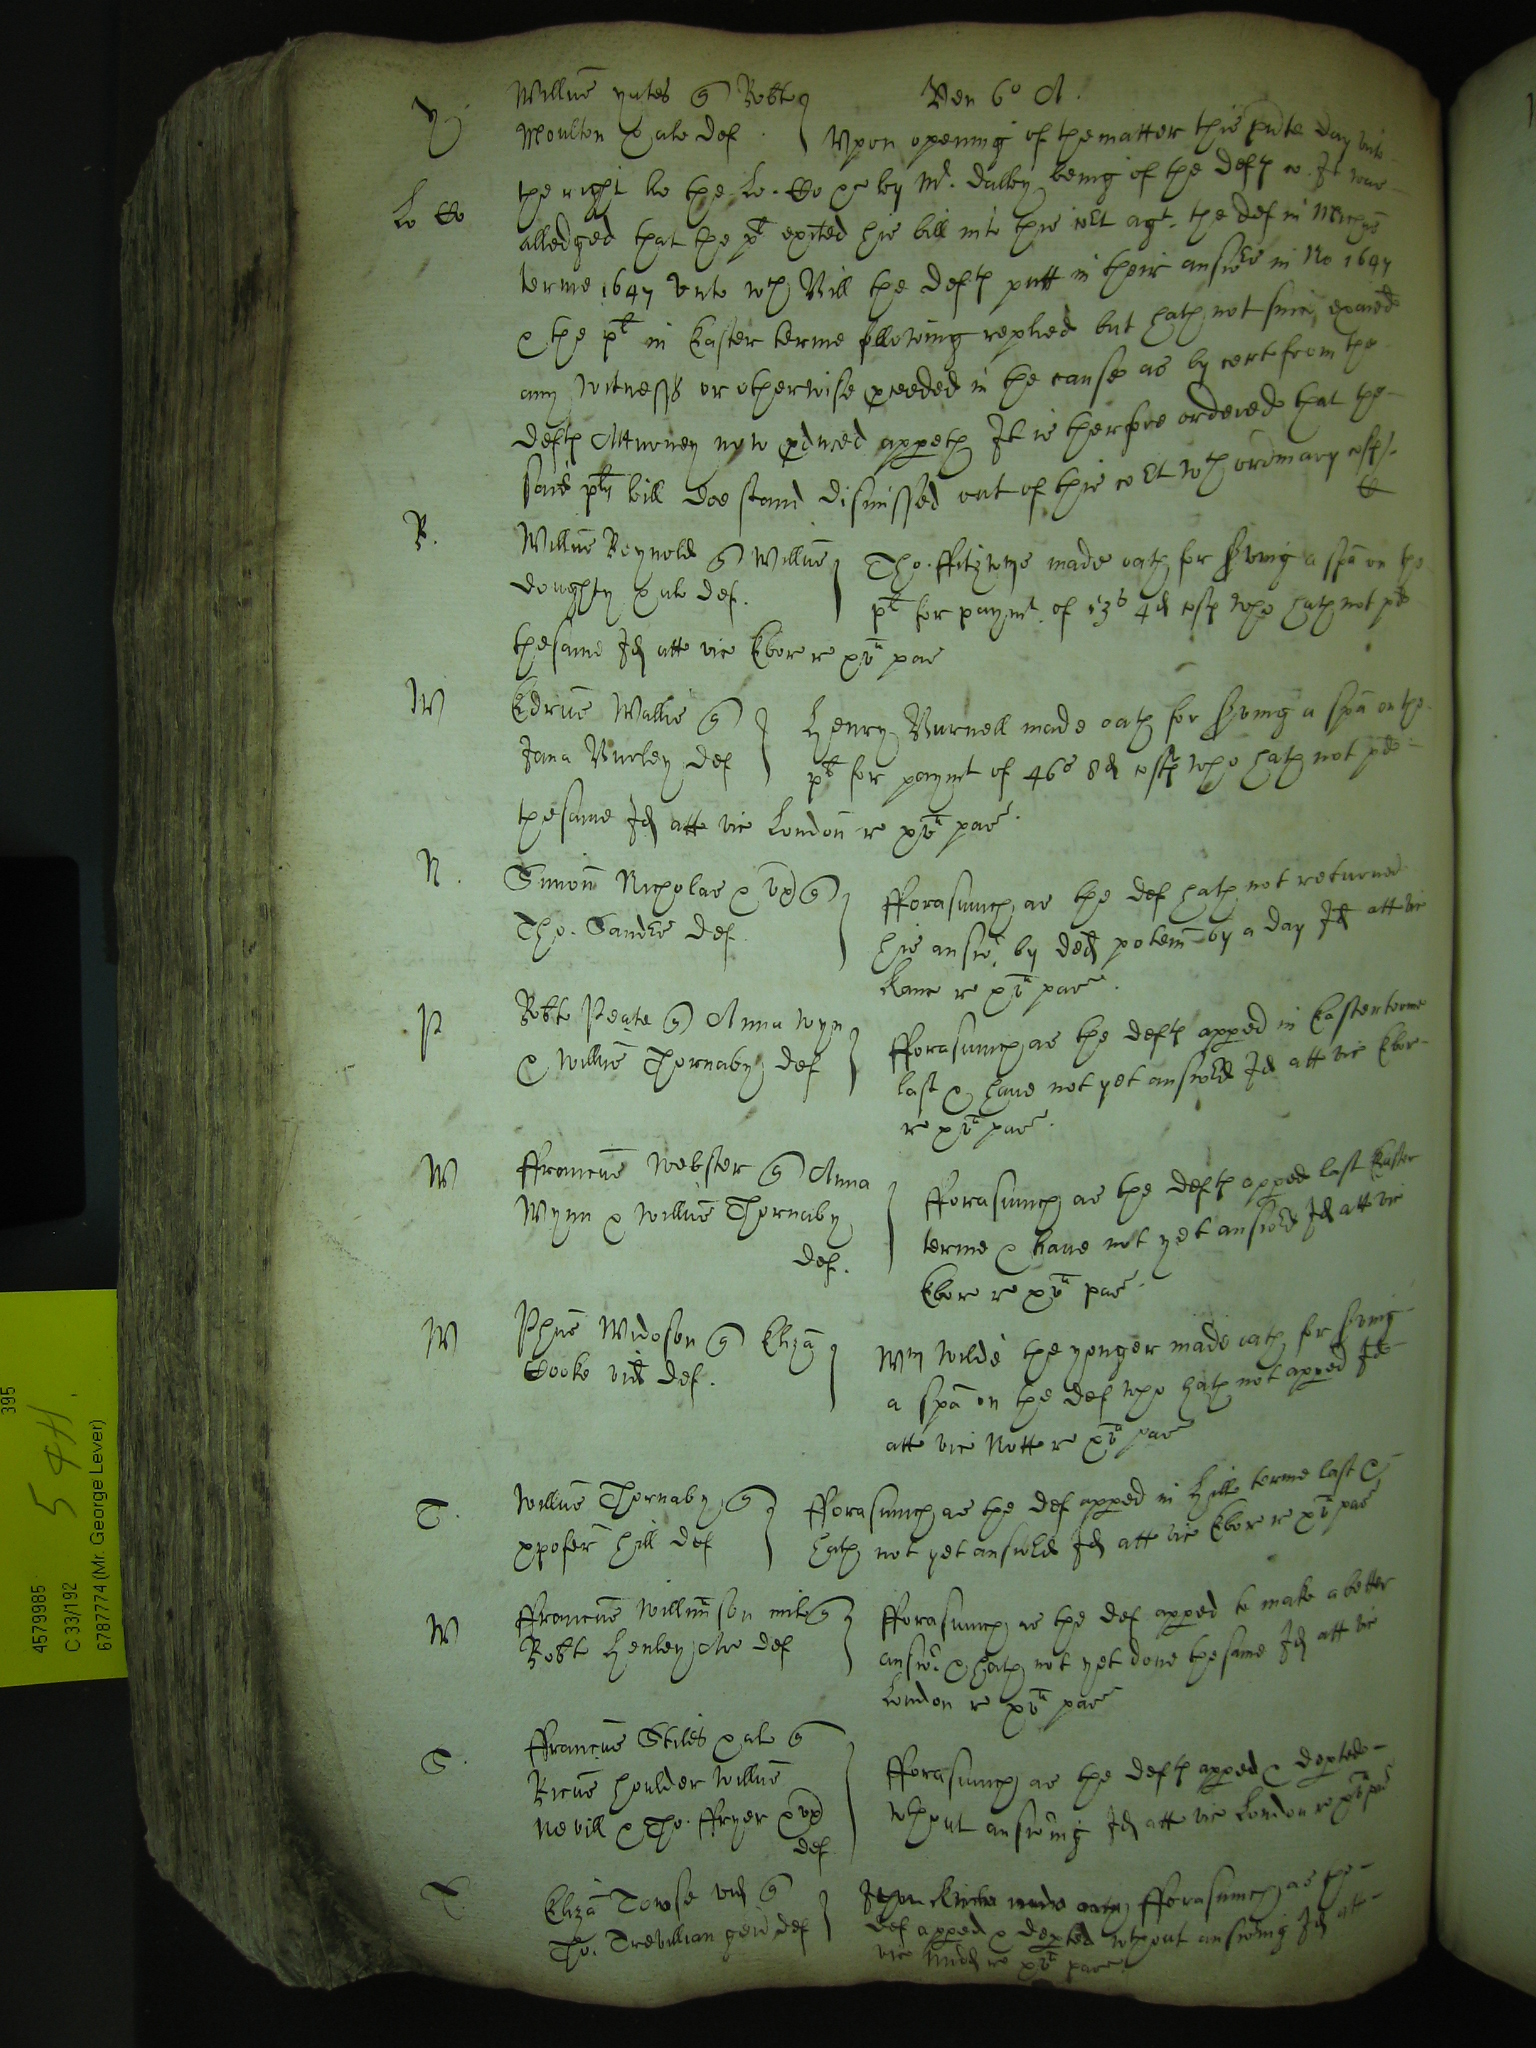 Y
Willus yates q Robte
Moulton & al def.
Ven 6o A.
Vpon opening of the matter this pnte day vnto
Lo Co
the right ho the Lo. Co &c by Mr. Dalby being of the deftes co. It was
alledged that the plt exited his bill into this co't agt. the def in Mich's
terme 1647 vnto wch Bill the deftes putt in their answe in No 1647
& the plt in Easter terme following replied but hath not since exaied
any witnesses or otherwise pceeded in the cause as by cert from the
deftes Atturney now pduced appeth It is therfore ordered that the
said pltes bill doe stand dismissed out of this co't wth ordinary costes
R.
Willus Reynolds q Willus
doughty & al def.
Tho. ffitz made oath for sving a spa on the
plt for paymt. of 13s 4d costes who hath not pd
thesame Id atto vic Ebor re xva pas
W
Edrus Wallis q
Jana Burley def
Henry Burnell made oath for sving a spa on the
plt for paymt of 46s 8d costes who hath not pd
thesame Id atto vic London re xva pas
N.
Simon Nicholas & vx q
Tho. Sanders def.
fforasmuch as the def hath not returned
his answ. by ded potem by a day Id att vic
Kanc re xva pas.
P
Robte Peate q Anna Wyn
& Willus Thornaby def
fforasmuch as the deftes apped in Easterterme
last & haue not yet answed Id att vic Ebor
re xva pas.
W
ffrancus Webster q Anna
Wynn & Willus Thornaby
def.
fforasmuch as the deftes apped last Easter
terme & haue not yet answed Id att vic
Ebor re xva pas.
W
Phus Widoson q Eliza
Cooke vid def.
Wm Wilde the yonger made oath for sving
a spa on the def who hath not apped Id
atto vic Nott re xva pas
T.
Willus Thornaby q
xpofer hill def
fforasmuch as the def apped in Hill terme last &
hath not yet answed Id att vic Ebor re xva pas
W
ffrancus Willmson mil q
Robt Henley Ar def
fforasmuch as the def apped to make a better
answ. & hath not yet done thesame Id att vic
London re xva pas
S.
ffrancus Stiles & al q
Ricus houlder Willus
Nevill & Tho. ffryer & vx
def
fforasmuch as the deftes apped & depted
wthout answing Id att vic London re xva pas
T
Eliza Towse vid q
Tho. Trevillian gen def
made oath fforasmuch as the
def apped & depted wthout answing Id att
vic Midd re xva pas.
395
5 44.
4579985
C 33/192
6787774 (Mr. George Lever)